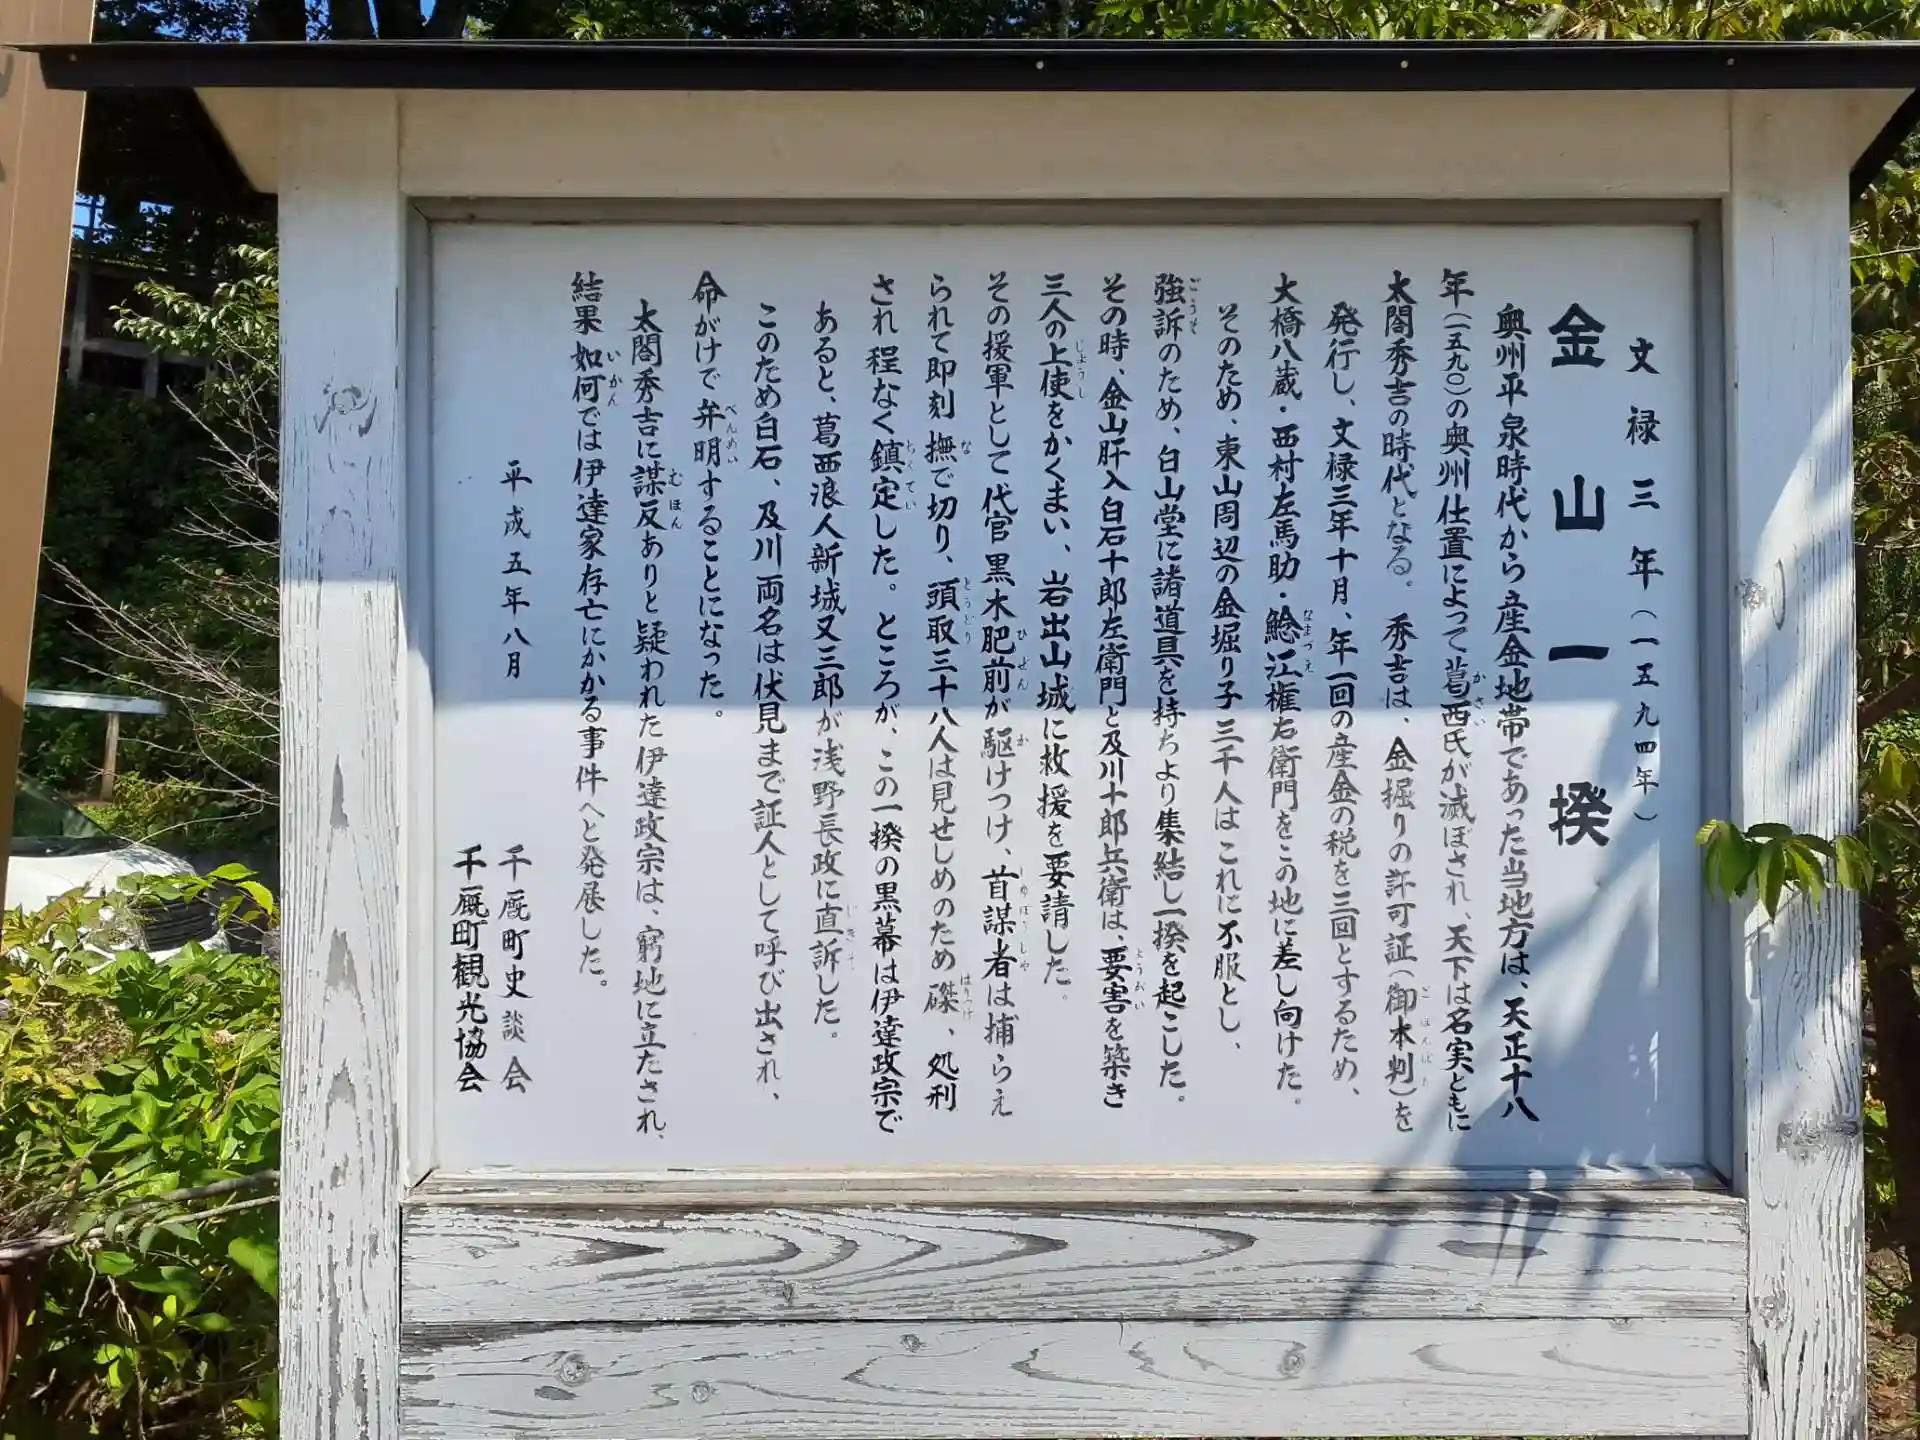 文禄三年（一五九四年）
金山一揆
奥州平泉時代から産金地帯であった当地方は、天正十八
年（一五九〇）の奥州仕置によって葛西氏が滅ぼされ、天下は名実ともに
太閤秀吉の時代となる。秀吉は、金掘りの許可証（御本判）を
発行し、文禄三年十月、年一回の産金の税を三回とするため、
大橋八蔵・西村左馬助・鯰江権右衛門をこの地に差し向けた。
そのため、東山周辺の金堀り子三千人はこれに不服とし、
強訴のため、白山堂に諸道具を持ちより集結し一揆を起こした。
その時、金山肝入白石十郎左衛門と及川十郎兵衛は、要害を築き
三人の上使をかくまい、岩出山城に救援を要請した。
その援軍として代官黒木肥前が駆けつけ、首謀者は捕らえ
られて即刻撫で切り、頭取三十八人は見せしめのため磔、処刑
され程なく鎮定した。ところが、この一揆の黒幕は伊達政宗で
あると、葛西浪人新城又三郎が浅野長政に直訴した。
このため白石、及川両名は伏見まで証人として呼び出され、
命がけで弁明することになった。
太閤秀吉に謀反ありと疑われた伊達政宗は、窮地に立たされ、
結果如何では伊達家存亡にかかる事件へと発展した。
平成五年八月
千厩町史談会
千厩町観光協会